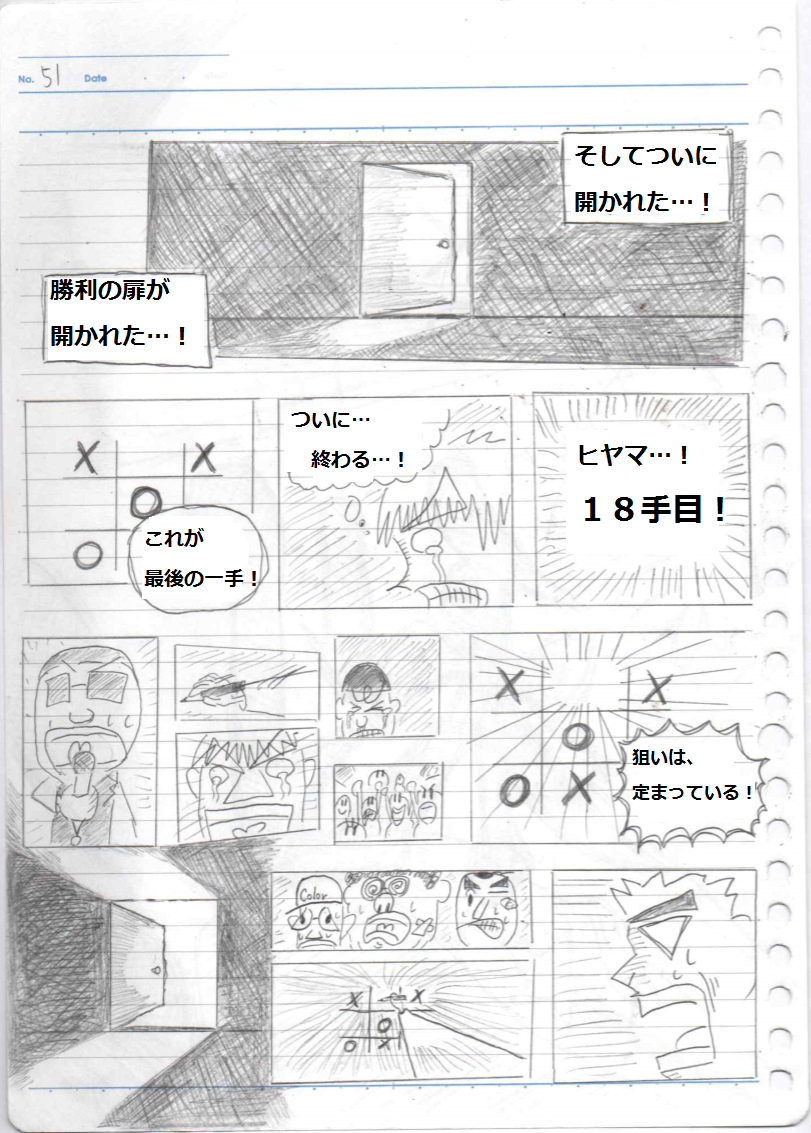 No. 51 Date
そしてついに
開かれた…！
勝利の扉が
開かれた…！
ヒヤマ…！
１８手目！
ついに…
終わる…！
X X
O
O
これが
最後の一手！
X X
O
O X
狙いは、
定まっている！
Color
X X
O
O X